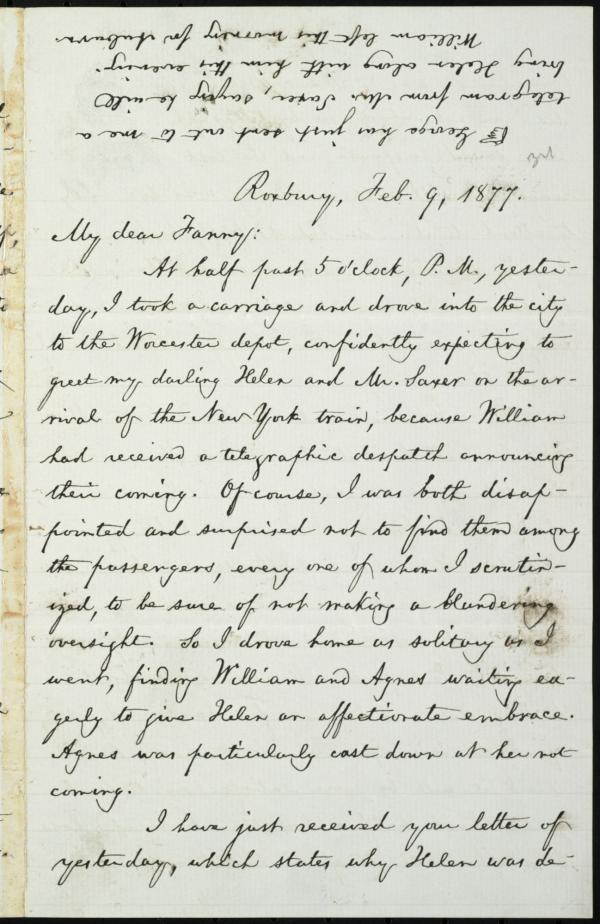 ☞ George has just sent out to me a
telegram from Mr. Saxer, saying he will
bring Helen along with him this evening.
William left this morning for Auburn.
Roxbury, Feb. 9, 1877.
My dear Fanny:
At half past 5 o'clock, P. M., yester-
day, I took a carriage and drove into the city
to the Worcester depot, confidently expecting to
greet my darling Helen and Mr. Saxer on the ar-
rival of the New York train, because William
had received a telegraphic despatch announcing
their coming. Of course, I was both disap-
pointed and surprised not to find them among
the passengers, every one of whom I scrutin-
ized, to be sure of not making a blundering
oversight. So I drove home as solitary as I
went, finding William and Agnes waiting ea-
gerly to give Helen an affectionate embrace.
Agnes was particularly cast down at her not
coming.
I have just received your letter of
yesterday, which states why Helen was de-